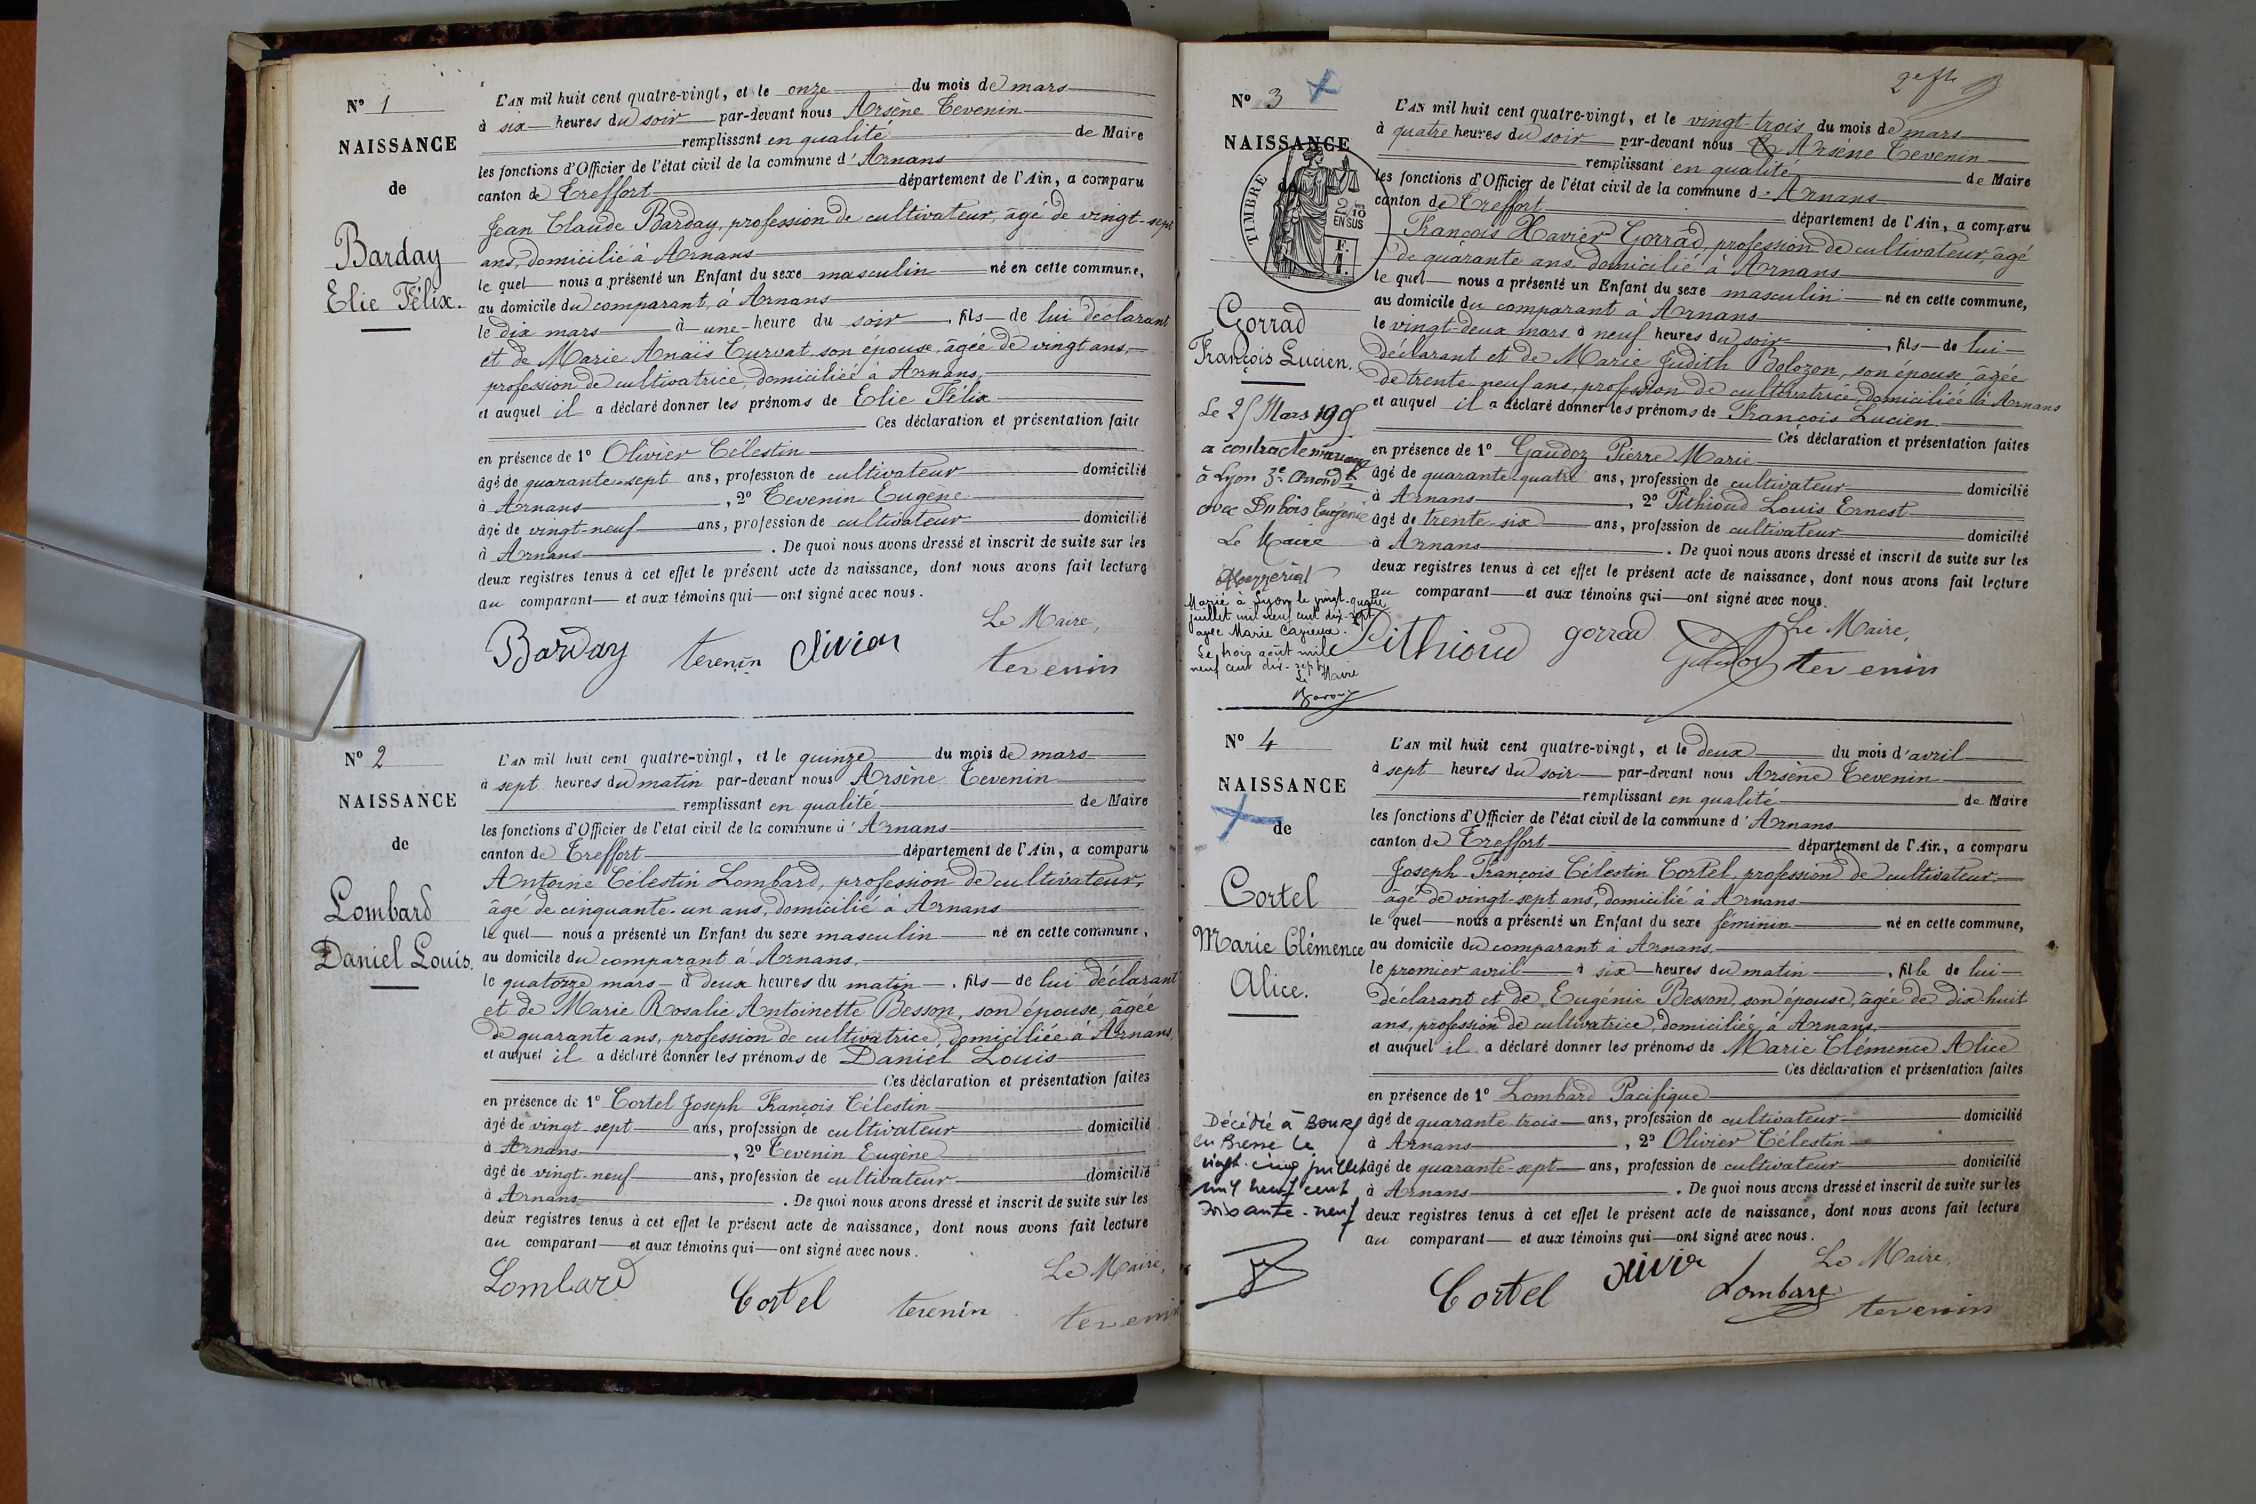 N° 1
NAISSANCE
de
Barday
Elie Félix.
L'AN mil huit cent quatre-vingt, et le onze du mois de mars
à six heures du soir par-devant nous Arsène Tevenin
remplissant en qualité de Maire
les fonctions d'Officier de l'état civil de la commune d'Arnans
canton de Treffort département de l'Ain, a comparu
Jean Claude Barday, profession de cultivateur, âgé de vingt-sept
ans, domicilié à Arnans
le quel nous a présenté un Enfant du sexe masculin né en cette commune,
au domicile du comparant, à Arnans
le dix mars à une heure du soir, fils de lui déclarant
et de Marie Anaïs Curvat son épouse, âgée de vingt ans,
profession de cultivatrice, domiciliée à Arnans,
et auquel il a déclaré donner les prénoms de Elie Félix
Ces déclaration et présentation faite
en présence de 1° Olivier Célestin
âgé de quarante-sept ans, profession de cultivateur domicilié
à Arnans, 2° Tevenin Eugène
âgé de vingt-neuf ans, profession de cultivateur domicilié
à Arnans. De quoi nous avons dressé et inscrit de suite sur les
deux registres tenus à cet effet le présent acte de naissance, dont nous avons fait lecture
au comparant et aux témoins qui ont signé avec nous.
Le Maire,
Barday tevenin Olivier tevenin
N° 2
NAISSANCE
de
Lombard
Daniel Louis.
L'AN mil huit cent quatre-vingt, et le quinze du mois de mars
à sept heures du matin par-devant nous Arsène Tevenin
remplissant en qualité de Maire
les fonctions d'Officier de l'état civil de la commune d'Arnans
canton de Treffort département de l'Ain, a comparu
Antoine Célestin Lombard, profession de cultivateur,
âgé de cinquante-un ans, domicilié à Arnans
le quel nous a présenté un Enfant du sexe masculin né en cette commune,
au domicile du comparant à Arnans.
le quatorze mars à deux heures du matin, fils de lui déclarant
et de Marie Rosalie Antoinette Besson, son épouse, âgée
de quarante ans, profession de cultivatrice, domiciliée à Arnans,
et auquel il a déclaré donner les prénoms de Daniel Louis
Ces déclaration et présentation faites
en présence de 1° Cortel Joseph François Célestin
âgé de vingt sept ans, profession de cultivateur domicilié
à Arnans, 2° Tevenin Eugène
âgé de vingt-neuf ans, profession de cultivateur domicilié
à Arnans. De quoi nous avons dressé et inscrit de suite sur les
deux registres tenus à cet effet le présent acte de naissance, dont nous avons fait lecture
au comparant et aux témoins qui ont signé avec nous.
Le Maire,
Lombard Cortel tevenin tevenin
N° 3
NAISSANCE
de
TIMBRE
2/10
EN SUS
Gorrad
François Lucien.
Mars
a contracté mariage
à Lyon 3e arrondt
avec Dubois Eugénie
Le Maire
Marié à Lyon le vingt-quatre
juillet mil neuf cent dix-sept
avec Marie Cazieux.
Le trois août mil
neuf cent dix-sept
Le Maire
L'AN mil huit cent quatre-vingt, et le vingt-trois du mois de mars
à quatre heures du soir par-devant nous Arsène Tevenin
remplissant en qualité de Maire
les fonctions d'Officier de l'état civil de la commune d'Arnans
canton de Treffort département de l'Ain, a comparu
François Xavier Gorrad, profession de cultivateur, âgé
de quarante ans, domicilié à Arnans
le quel nous a présenté un Enfant du sexe masculin né en cette commune,
au domicile du comparant à Arnans
le vingt-deux mars à neuf heures du soir, fils de lui
déclarant et de Marie Judith Bolozon, son épouse âgée
de trente-neuf ans, profession de cultivatrice, domiciliée à Arnans
et auquel il a déclaré donner les prénoms de François Lucien
Ces déclaration et présentation faites
en présence de 1° Gaudoz Pierre Marie
âgé de quarante-quatre ans, profession de cultivateur domicilié
à Arnans, 2° Pithioud Louis Ernest
âgé de trente-six ans, profession de cultivateur domicilié
à Arnans. De quoi nous avons dressé et inscrit de suite sur les
deux registres tenus à cet effet le présent acte de naissance, dont nous avons fait lecture
au comparant et aux témoins qui ont signé avec nous.
Le Maire,
Pithioud gorrad Gaudoz tevenin
N° 4
NAISSANCE
de
Cortel
Marie Clémence
Alice.
Décédée à Bourg
en Bresse le
vingt-cinq juillet
mil neuf cent
soixante-neuf
L'AN mil huit cent quatre-vingt, et le deux du mois d'avril
à sept heures du soir par-devant nous Arsène Tevenin
remplissant en qualité de Maire
les fonctions d'Officier de l'état civil de la commune d'Arnans
canton de Treffort département de l'Ain, a comparu
Joseph François Célestin Cortel, profession de cultivateur,
âgé de vingt-sept ans, domicilié à Arnans
le quel nous a présenté un Enfant du sexe féminin né en cette commune,
au domicile du comparant à Arnans,
le premier avril à six heures du matin, fille de lui
déclarant et de Eugénie Besson, son épouse, âgée de dix-huit
ans, profession de cultivatrice, domiciliée à Arnans,
et auquel il a déclaré donner les prénoms de Marie Clémence Alice
Ces déclaration et présentation faites
en présence de 1° Lombard Pacifique
âgé de quarante-trois ans, profession de cultivateur domicilié
à Arnans, 2° Olivier Célestin
âgé de quarante-sept ans, profession de cultivateur domicilié
à Arnans. De quoi nous avons dressé et inscrit de suite sur les
deux registres tenus à cet effet le présent acte de naissance, dont nous avons fait lecture
au comparant et aux témoins qui ont signé avec nous.
Le Maire,
Cortel Olivier Lombard tevenin